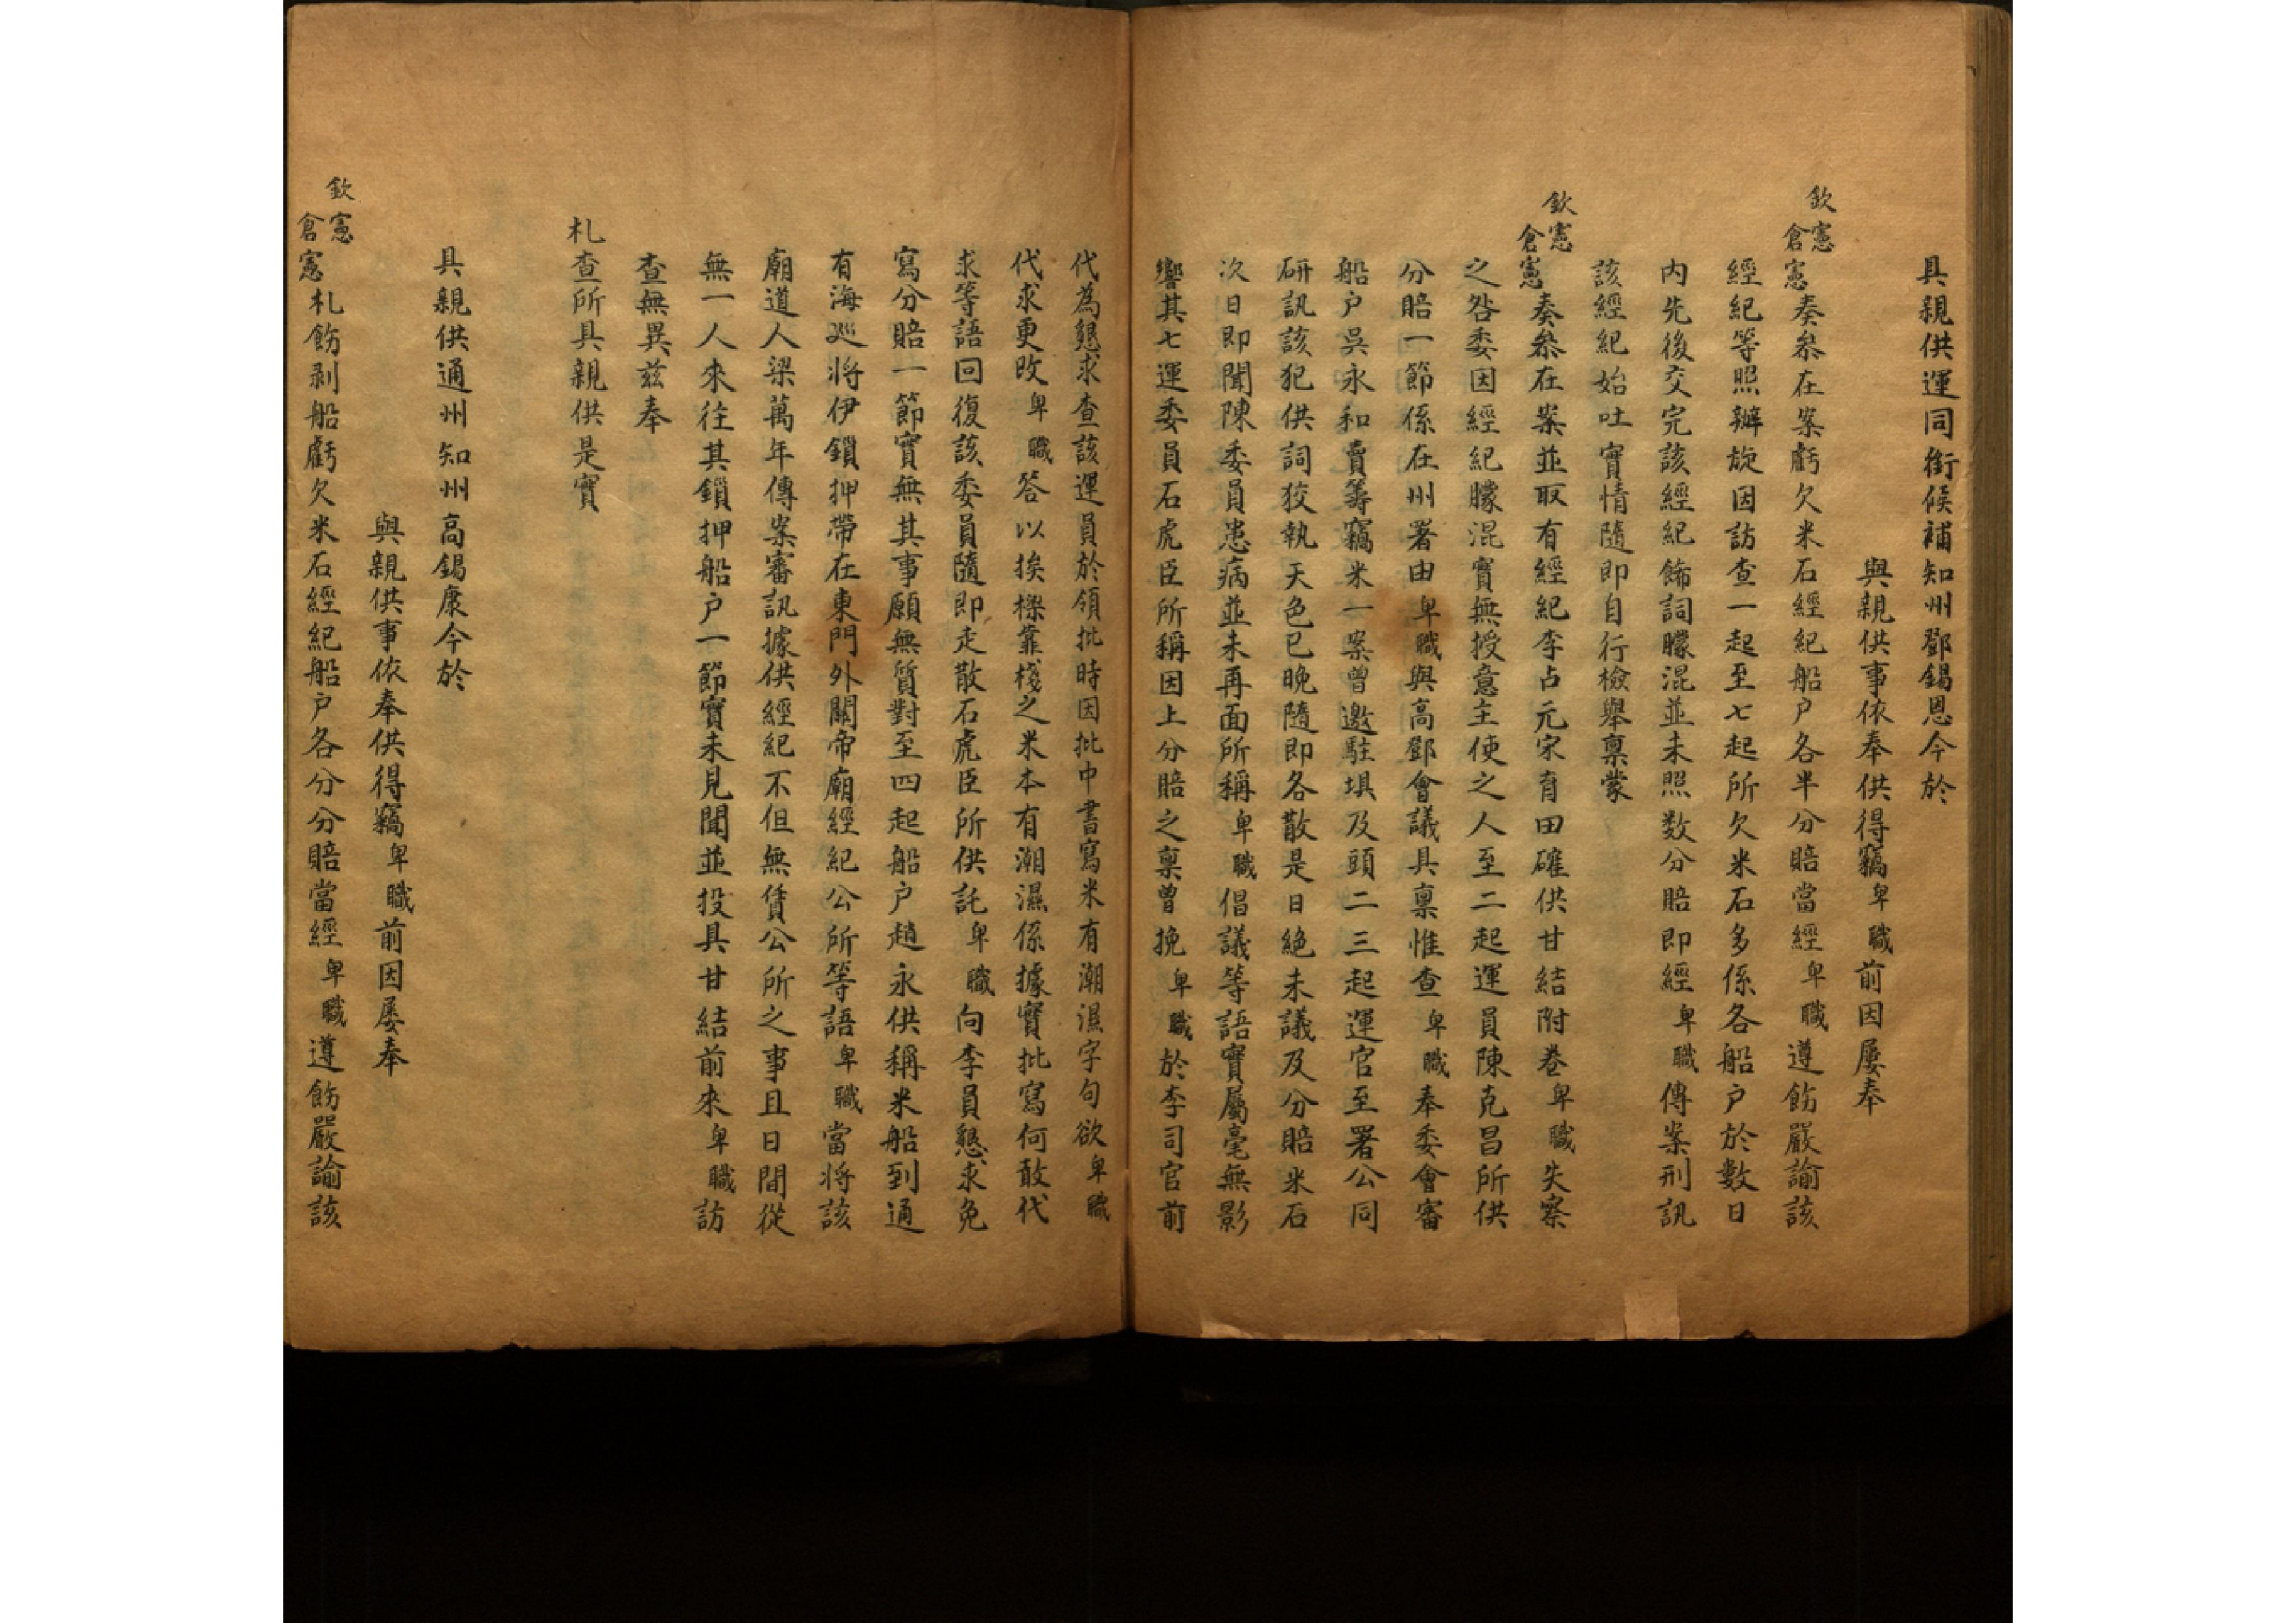 具親供運同銜候補知州鄧錫恩今於
與親供事依奉供得竊卑職前因屢奉
欽憲
倉憲奏叅在案虧欠米石經紀船户各半分賠當經卑職遵飭嚴諭該
經紀等照辦旋因訪查一起至七起所欠米石多係各船户於數日
内先後交完該經紀飾詞朦混並未照数分賠即經卑職傳案刑訊
該經紀始吐實情隨即自行檢舉禀蒙
欽憲
倉憲奏叅在案並取有經紀李占元宋育田確供甘結附卷卑職失察
之咎委因經紀朦混實無授意主使之人至二起運員陳克昌所供
分賠一節係在州署由卑職與高鄧會議具禀惟查卑職奉委會審
船户吳永和賣籌竊米一案曾邀駐埧及頭二三起運官至署公同
研訊該犯供詞狡執天色已晚隨即各散是日絕未議及分賠米石
次日即聞陳委員患病並未再面所稱卑職倡議等語實屬毫無影
響其七運委員石虎臣所稱因上分賠之禀曾挽卑職於李司官前
代為懇求查該運員於領批時因批中書寫米有潮濕字句欲卑職
代求更改卑職答以挨樑靠棧之米本有潮濕係據實批寫何敢代
求等語回復該委員隨即走散石虎臣所供託卑職向李員懇求免
寫分賠一節實無其事願無質對至四起船户趙永供稱米船到通
有海廵將伊鎖押帶在東門外關帝廟經紀公所等語卑職當將該
廟道人梁萬年傳案審訊據供經紀不但無賃公所之事且日間從
無一人來往其鎖押船户一節實未見聞並投具甘結前來卑職訪
查無異兹奉
札查所具親供是實
具親供通州知州高錫康今於
與親供事依奉供得竊卑職前因屢奉
欽憲
倉憲札飭剥船虧欠米石經紀船户各分分賠當經卑職遵飭嚴諭該